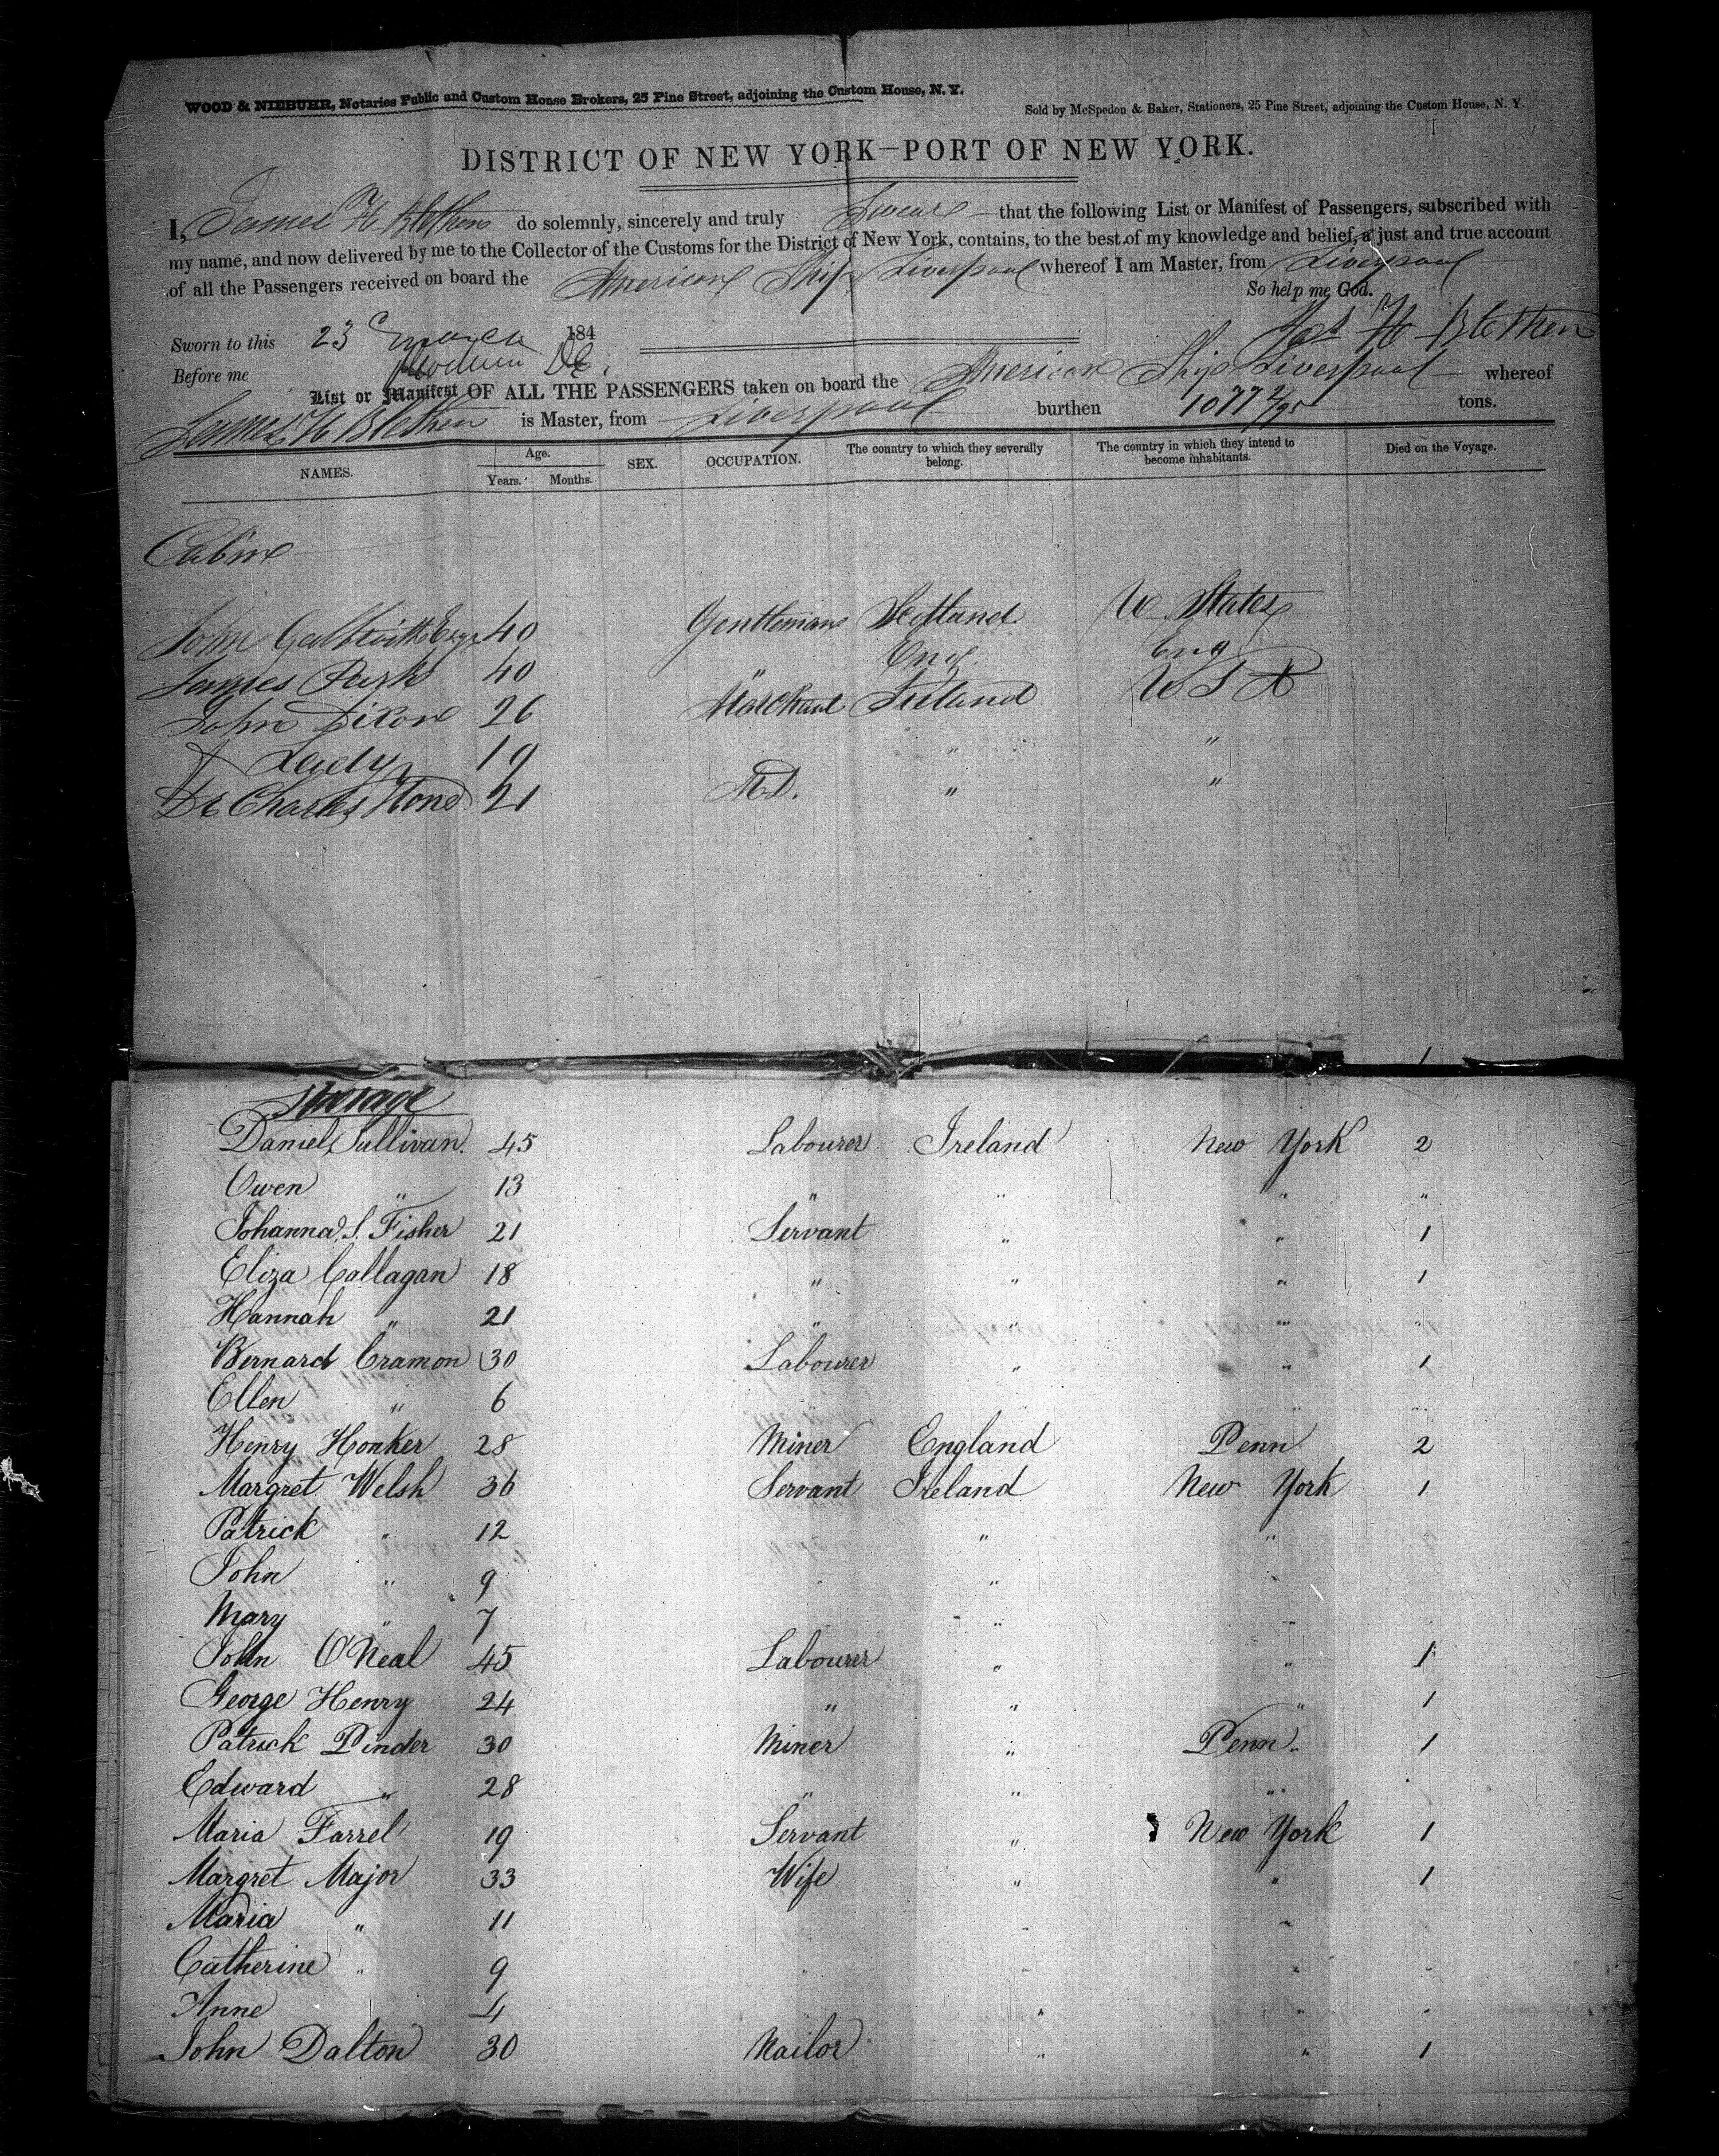 WOOD & NIEBUHR, Notaries Public and Custom House Brokers, 25 Pine Street, adjoining the Custom House, N. Y.
Sold by McSpedon & Baker, Stationers, 25 Pine Street, adjoining the Custom House, N. Y.
DISTRICT OF NEW YORK—PORT OF NEW YORK.
I, James H Blethen do solemnly, sincerely and truly Swear that the following List or Manifest of Passengers, subscribed with
my name, and now delivered by me to the Collector of the Customs for the District of New York, contains, to the best of my knowledge and belief, a just and true account
of all the Passengers received on board the American Ship Liverpool whereof I am Master, from Liverpool
So help me God.
Sworn to this 23 March 184 Jas H Blethen
Before me
List or Manifest OF ALL THE PASSENGERS taken on board the American Ship Liverpool whereof
James H Blethen is Master, from Liverpool burthen 1077 2/95 tons.
NAMES. Age. Years. Months. SEX. OCCUPATION. The country to which they severally belong. The country in which they intend to become inhabitants. Died on the Voyage.
Cabin
John Galbraith Esqr 40 Gentleman Scotland U States
James Park 40 " Eng. Eng
John Dixon 26 Merchant Ireland U S A
Lady 19 " "
Dr Charles 21 M.D. " "
1
Steerage
Daniel Sullivan. 45 Labourer Ireland New York 2
Owen " 13 " " " "
Johanna S. Fisher 21 Servant " " 1
Eliza Callagan 18 " " " 1
Hannah " 21 " " " "
Bernard Cramon 30 Labourer " " 1
Ellen " 6 " " "
Henry Honker 28 Miner England Penn 2
Margret Welsh 36 Servant Ireland New York 1
Patrick " 12 " "
John " 9 " "
Mary " 7 " "
John O'Neal 45 Labourer " " 1
George Henry 24 " " " 1
Patrick Pinder 30 Miner " Penn. 1
Edward " 28 " " "
Maria Farrel 19 Servant " New York 1
Margret Major 33 Wife " " 1
Maria " 11 " "
Catherine " 9 " "
Anne 4 " "
John Dalton 30 Nailor " " 1